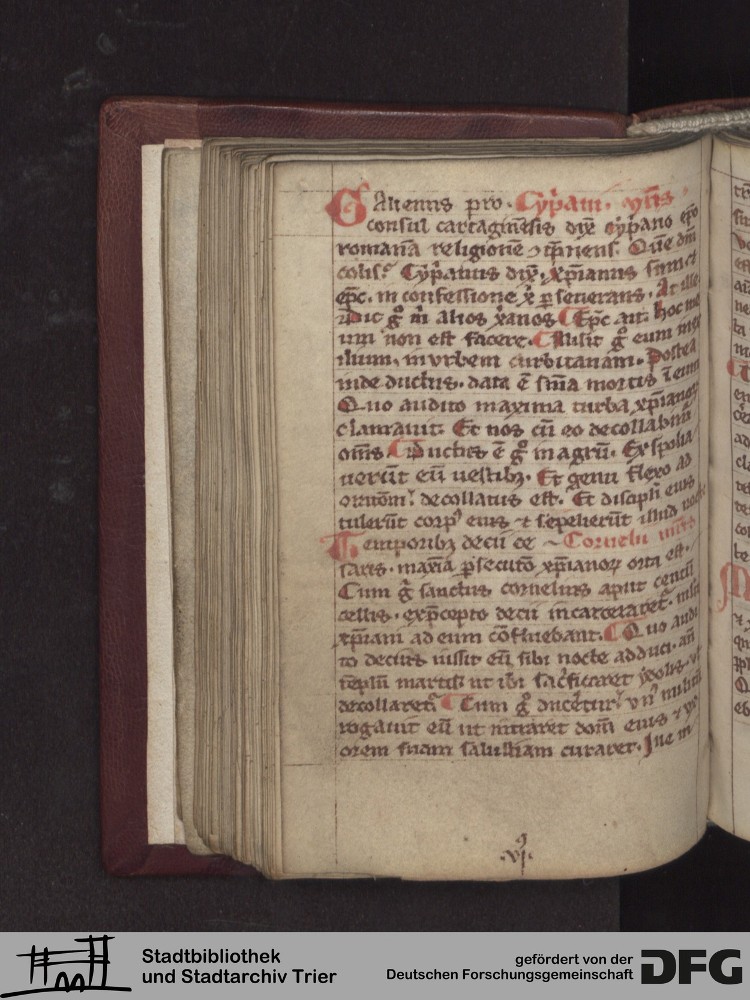 Galienus pro. Cyp̄ani. m̄ris
consul cartaginēsis dix̄ cyp̄ano ep̄o
romanā religionē Que dn̄i
colis. Cyp̄anus dix̄. xp̄ianus sum et
ep̄c. in confessione x̄ ꝑseuerans. At ille
Dic ḡ m̄ alios x̄anos. Ep̄c aut̄. hoc me
um non est facere. Misit ḡ eum in ex
ilium. in vrbem curbitanam. Postea
inde ductus. data ē sn̄ia mortis ī eum
Quo audito maxima turba xp̄ianoꝝ
clamauit. Et nos cū eo decollabim̄
om̄s. Ductus ē ḡ in agrū. Exspolia
uerūt eū uestibꝫ. Et genu flexo ad
orōnom̄ decollatus est. Et discip̄li eius
tulerūt corpꝰ eius ⁊ sepelierūt illud nocte
Temporibꝫ decii ce ~ Cornelii m̄ris
saris. maxīa ꝑsecutō xp̄ianoꝝ orta est.
Cum ḡ sanctus cornelius aput centū
cellis. ex p̄cepto decii incarceraret̄.
xp̄iani ad eum cōfluebant. Quo audi
to decius iussit eū sibi nocte adduci. an̄
tēplū martis ut ibi sac̄ficaret ydolis. ut
decollaret̄ Cum ḡ ducēetur vn̄ militū
rogauit eū ut intraret domū eius ⁊ vx
orem suam salustiam curaret. Que in
.vj.
Stadtbibliothek
und Stadtarchiv Trier
gefördert von der
Deutschen Forschungsgemeinschaft
DFG